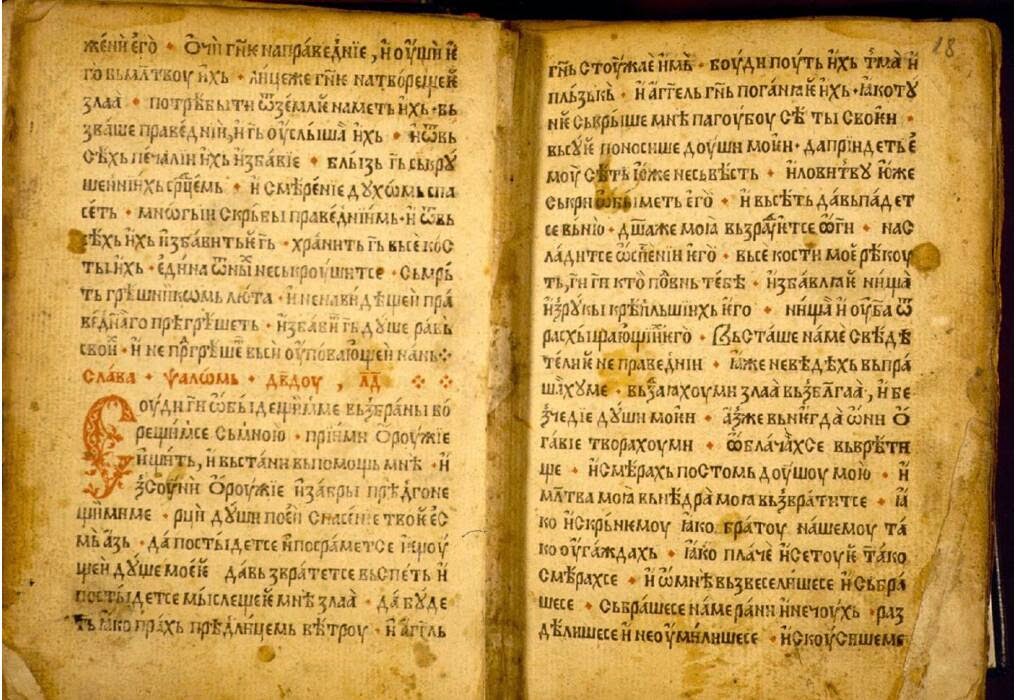 женїи его · Очи гнѥ направеднїе , и оуши ѥ
го вьмл҃твоу ихь · лицеже гнѥ натворещеѥ
злаа · потрѣбыти ѿземлѥ наметь ихь · вь
зваше праведнїи, и гь оуслыша ихь · и ѿвь
сѣхь печалїи ихь избавїе · близь гь ськру
шеннїихь срцемь · и смѣренїе духомь спа
сеть · многыи скрьбы праведнїимь · и ѿвь
сѣхь ихь избавитьи гь · хранить гь высе кос
ты ихь · едина ѿ ныхь неськроушитсе · сьмрь
ть грѣшнїикомь люта · и ненавидѣшеи пра
веднаго прѣгрѣшеть · избавїи гь душе рабь
свои · и не прѣгрѣше вьси оуповающеи нань
слава · ѱаломь · дв҃доу , л҃д
Соуди ги ѡбыдещимме вьзбраны бо
рещимсе сьмною · прїими ороужїе
и щить, и вьстани выпомощь мнѣ · и
зсоуни ороужїе и забры прѣдгоне
щимме · рци души моеи спасенїе твоѥ ес
мь азь · да постыдетсе и посрамет се ищоу
щеи душе моеѥ давьзвратетсе вьспеть и
постыдетсе мыслещеи мнѣ злаа · да буде
ть іако прахь прѣдлицемь вѣтроу · и агг҃ль
18
гнь стоужае имь · боуди поуть ихь тма и
пльзькь · и агг҃ель гнь поганїаѥ ихь · іако ту
нѥ ськрыше мнѣ пагоубоу сѣты своѥи ·
вьсуѥ поносише доуши моѥи · да прїидеть е
моу сѣть юже несьвѣсть · и ловитву юже
ськри ѡбьыметь его · и высѣть да выпадет
се вьнюь · дшаже моіа вьзрадуитсе ѡ ги · нас
ладитсе ѡ спсенїи ѥго · вьсе кости мое рѣкоу
ть, ги ги кто повнь тебѣ · избавлїаѥ нища
из рукы крѣпльшїихь ѥго · нища и оубога ѿ
расхыщающїихь ѥго · Вьсташе на ме свѣдѣ
телїе не праведнїи · іаже невѣдѣхь выпра
шахуме · вьздаіахоуми злаа вьзблагаа, и бе
счедїе души моѥи · азже вынѥгда ѡни о
гавїе твораахоуми · ѡблачахсе вьврѣти
ще · и смѣрахь постомь доушоу мою · и
мл҃тва моіа вьнѣдра моіа вьзвратитсе · іа
ко искрьнемоу іако братоу нашемоу та
ко оугаждахь · іако плаче и сетоуѥ тако
смѣрахсе · и ѡ мнѣ вьзвеселишесе и сьбра
шесе · сьбрашесе на ме рани и нечоухь · раз
дѣлишесе и не оумилишесе · искоусишеме